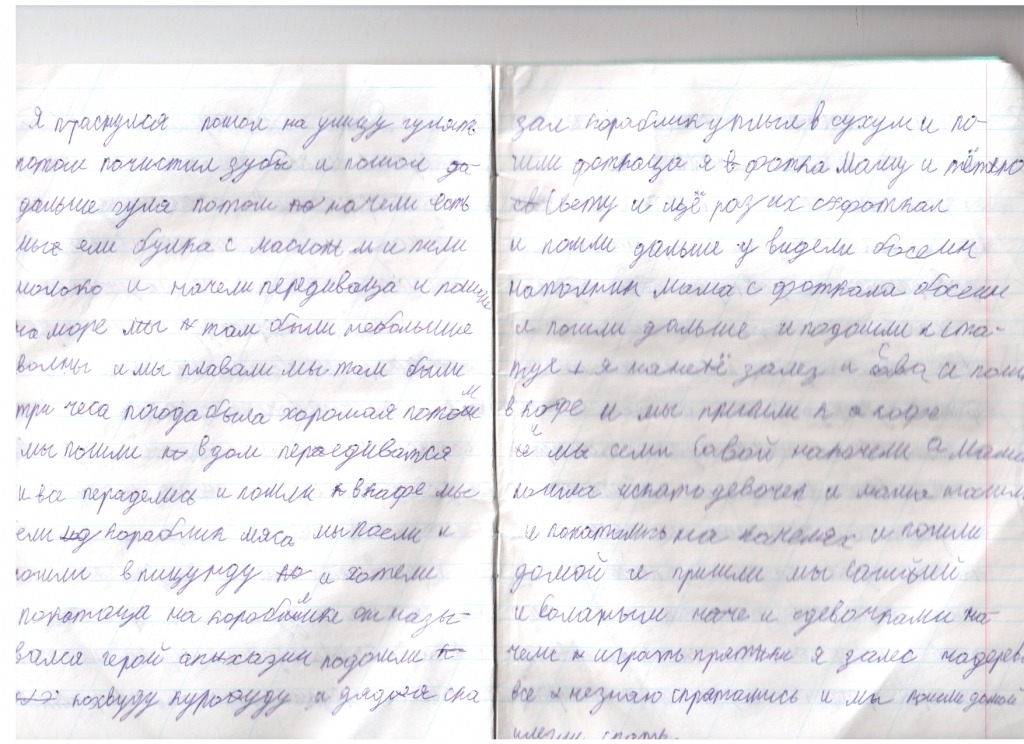 Я праснулся пошол на улицу гулять
потом почистил зубы и пошол да-
дальше гуля потом начели есть
мы ели булка с маслом и пили
молоко и начели передеваца и пошли
на море мы там были небольшие
волны и мы плавали мы там были
три чеса погода была хорошая потом
мы пошли в дом переедиватся
и все пераделись и пошли в кафе мы
ели кораблик мяса мы поели и
пошли в пицунду и хотели
покатаца на корабли он назы-
вался герой апыхазии подошли
и дядя ска
зал кораблик уплыл в сухум и по-
шли фоткаца я фотка Маму и тётю
Свету и ещё раз их сфоткал
и пошли дальше увидели босеин
мама сфоткала босеин
и пошли дальше и подошли к ста-
туе и я на неё залез и сава и пошли
в кафе и мы пришли к а кафе
и мы сели Савой на качели а Мама
пошла искать девочек и мама
и покатались на качелях и пошли
домой и пришли мы
и и с девочками на-
чели играть прятки я залес надерево
все незнаю спрятались и мы пошли домой
и легли спать.